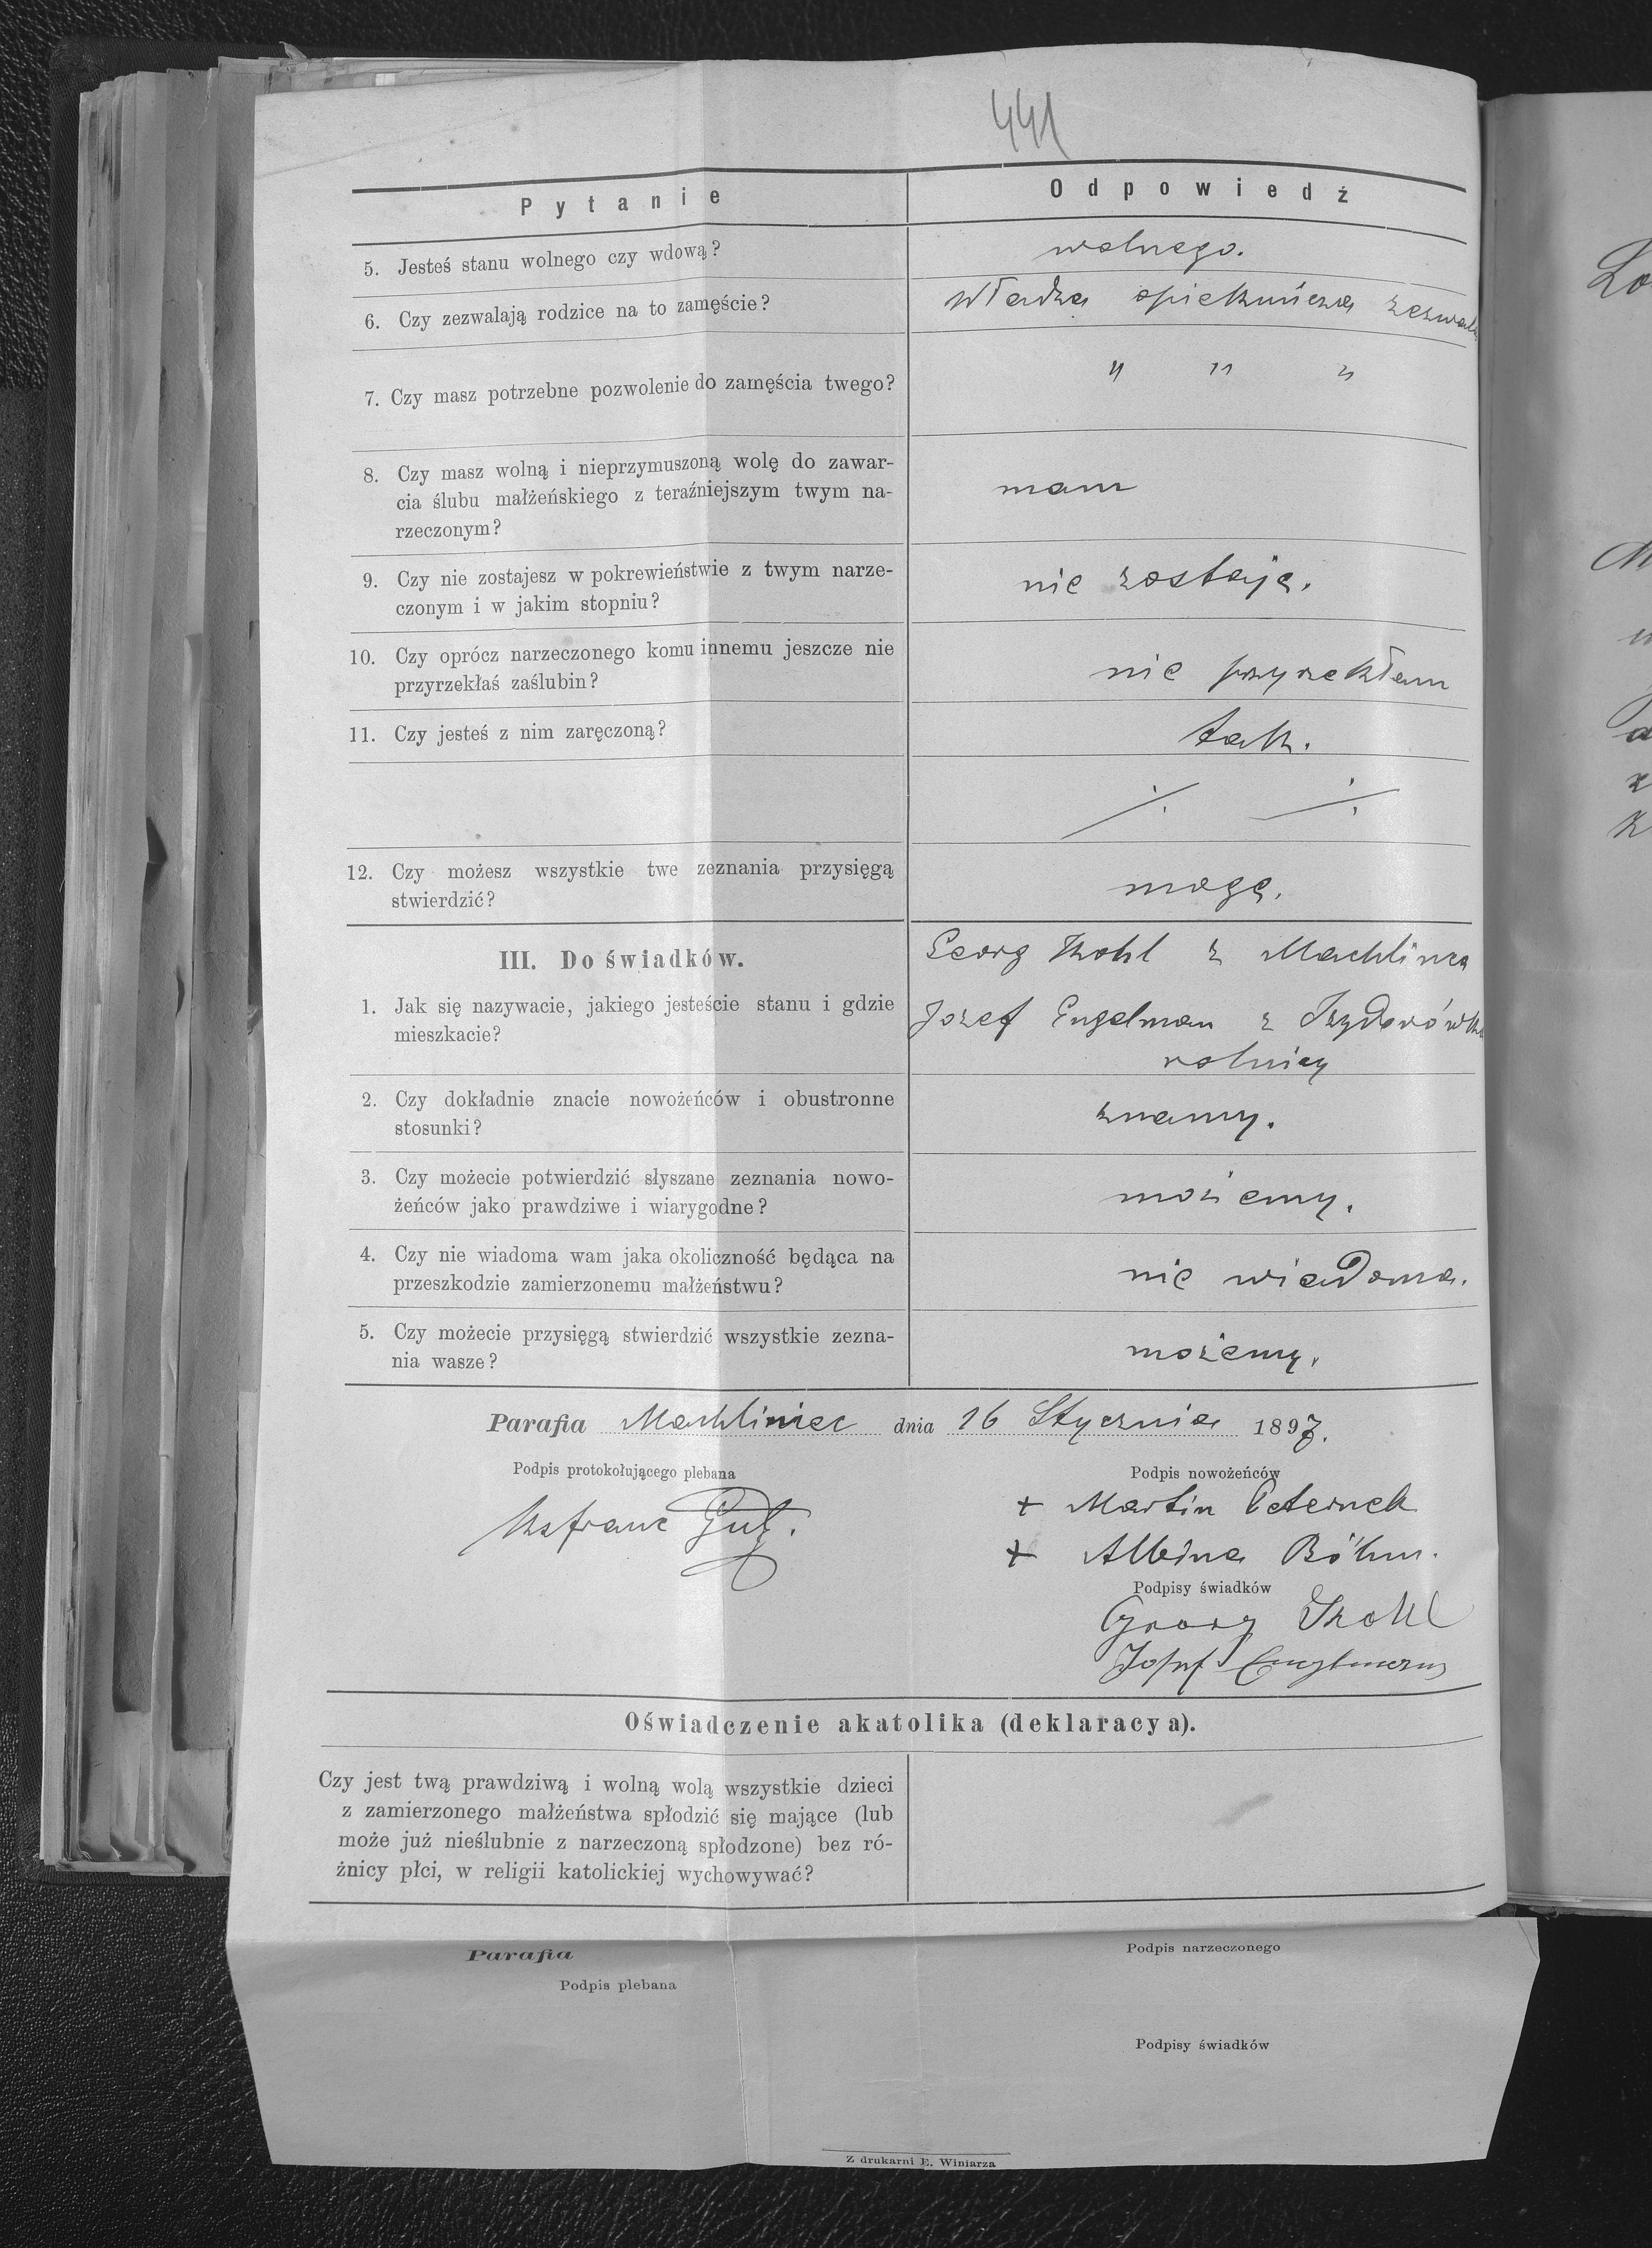 441
Pytanie Odpowiedź
5. Jesteś stanu wolnego czy wdową? wolnego.
6. Czy zezwalają rodzice na to zamęście? Władza opiekuńcza zezwala
7. Czy masz potrzebne pozwolenie do zamęścia twego? " " "
8. Czy masz wolną i nieprzymuszoną wolę do zawar-
cia ślubu małżeńskiego z teraźniejszym twym na- mam
rzeczonym?
9. Czy nie zostajesz w pokrewieństwie z twym narze- nie zostaję.
czonym i w jakim stopniu?
10. Czy oprócz narzeczonego komu innemu jeszcze nie
przyrzekłaś zaślubin? nie przyrzekłam
11. Czy jesteś z nim zaręczoną? tak.
12. Czy możesz wszystkie twe zeznania przysięgą
stwierdzić? mogę.
III. Do świadków. Georg Kohl z Machlińca
1. Jak się nazywacie, jakiego jesteście stanu i gdzie Jozef Engelman z Izydorówki
mieszkacie? rolnicy
2. Czy dokładnie znacie nowożeńców i obustronne znamy.
stosunki?
3. Czy możecie potwierdzić słyszane zeznania nowo- możemy.
żeńców jako prawdziwe i wiarygodne?
4. Czy nie wiadoma wam jaka okoliczność będąca na nie wiadoma.
przeszkodzie zamierzonemu małżeństwu?
5. Czy możecie przysięgą stwierdzić wszystkie zezna- możemy.
nia wasze?
Parafia Machliniec dnia 16 Stycznia 1897.
Podpis protokołującego plebana Podpis nowożeńców
+ Martin Peternek
+ Albina Böhm.
Podpisy świadków
Georg Kohl
Josef Engelmann
Oświadczenie akatolika (deklaracya).
Czy jest twą prawdziwą i wolną wolą wszystkie dzieci
z zamierzonego małżeństwa spłodzić się mające (lub
może już nieślubnie z narzeczoną spłodzone) bez ró-
żnicy płci, w religii katolickiej wychowywać?
Parafia Podpis narzeczonego
Podpis plebana
Podpisy świadków
Z drukarni E. Winiarza